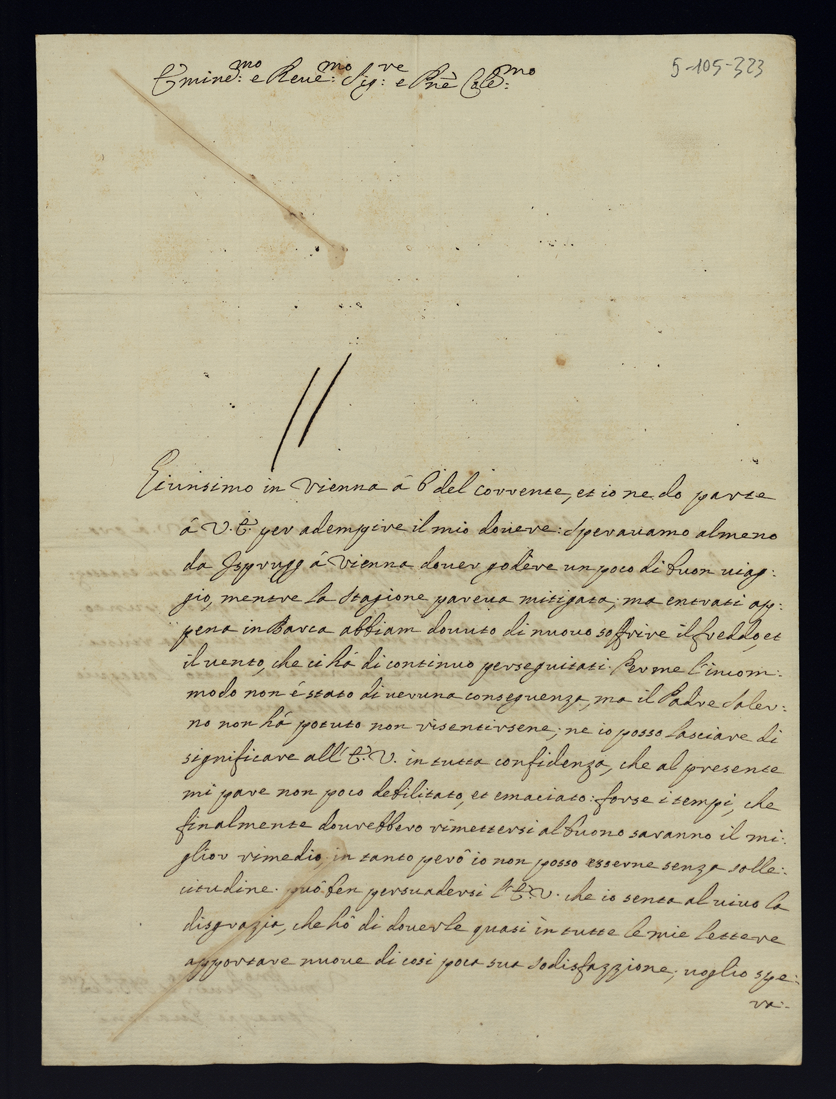 5-105-323
Emine:mo e Reue:mo Sig:re e Pnẽ Cole:mo
Giunsimo in Vienna à 6 del corrente, et io ne do parte
à V. E. per adempire il mio douere: Sperauamo almeno
da Jsprugg à Vienna douer godere un poco di buon uiag:
gio, mentre la Stagione pareua mitigata; ma entrati ap:
pena in Barca abbiam douuto di nuouo soffrire il freddo, et
il uento, che ci hà di continuo perseguitati. Per me l'incom:
modo non é stato di ueruna conseguenza, ma il Padre Saler:
no non hà potuto non risentirsene; ne io posso lasciare di
significare all'E. V. in tutta confidenza, che al presente
mi pare non poco debilitato, et emaciato: forse i tempi, che
finalmente dourebbero rimettersi al buono saranno il mi:
glior rimedio, in tanto però io non posso esserne senza solle:
citudine. può ben persuadersi l'E. V. che io senta al uiuo la
disgrazia, che hò di douerle quasi in tutte le mie lettere
apportare nuoue di cosi poca sua sodisfazzione; uoglio spe:
ra: